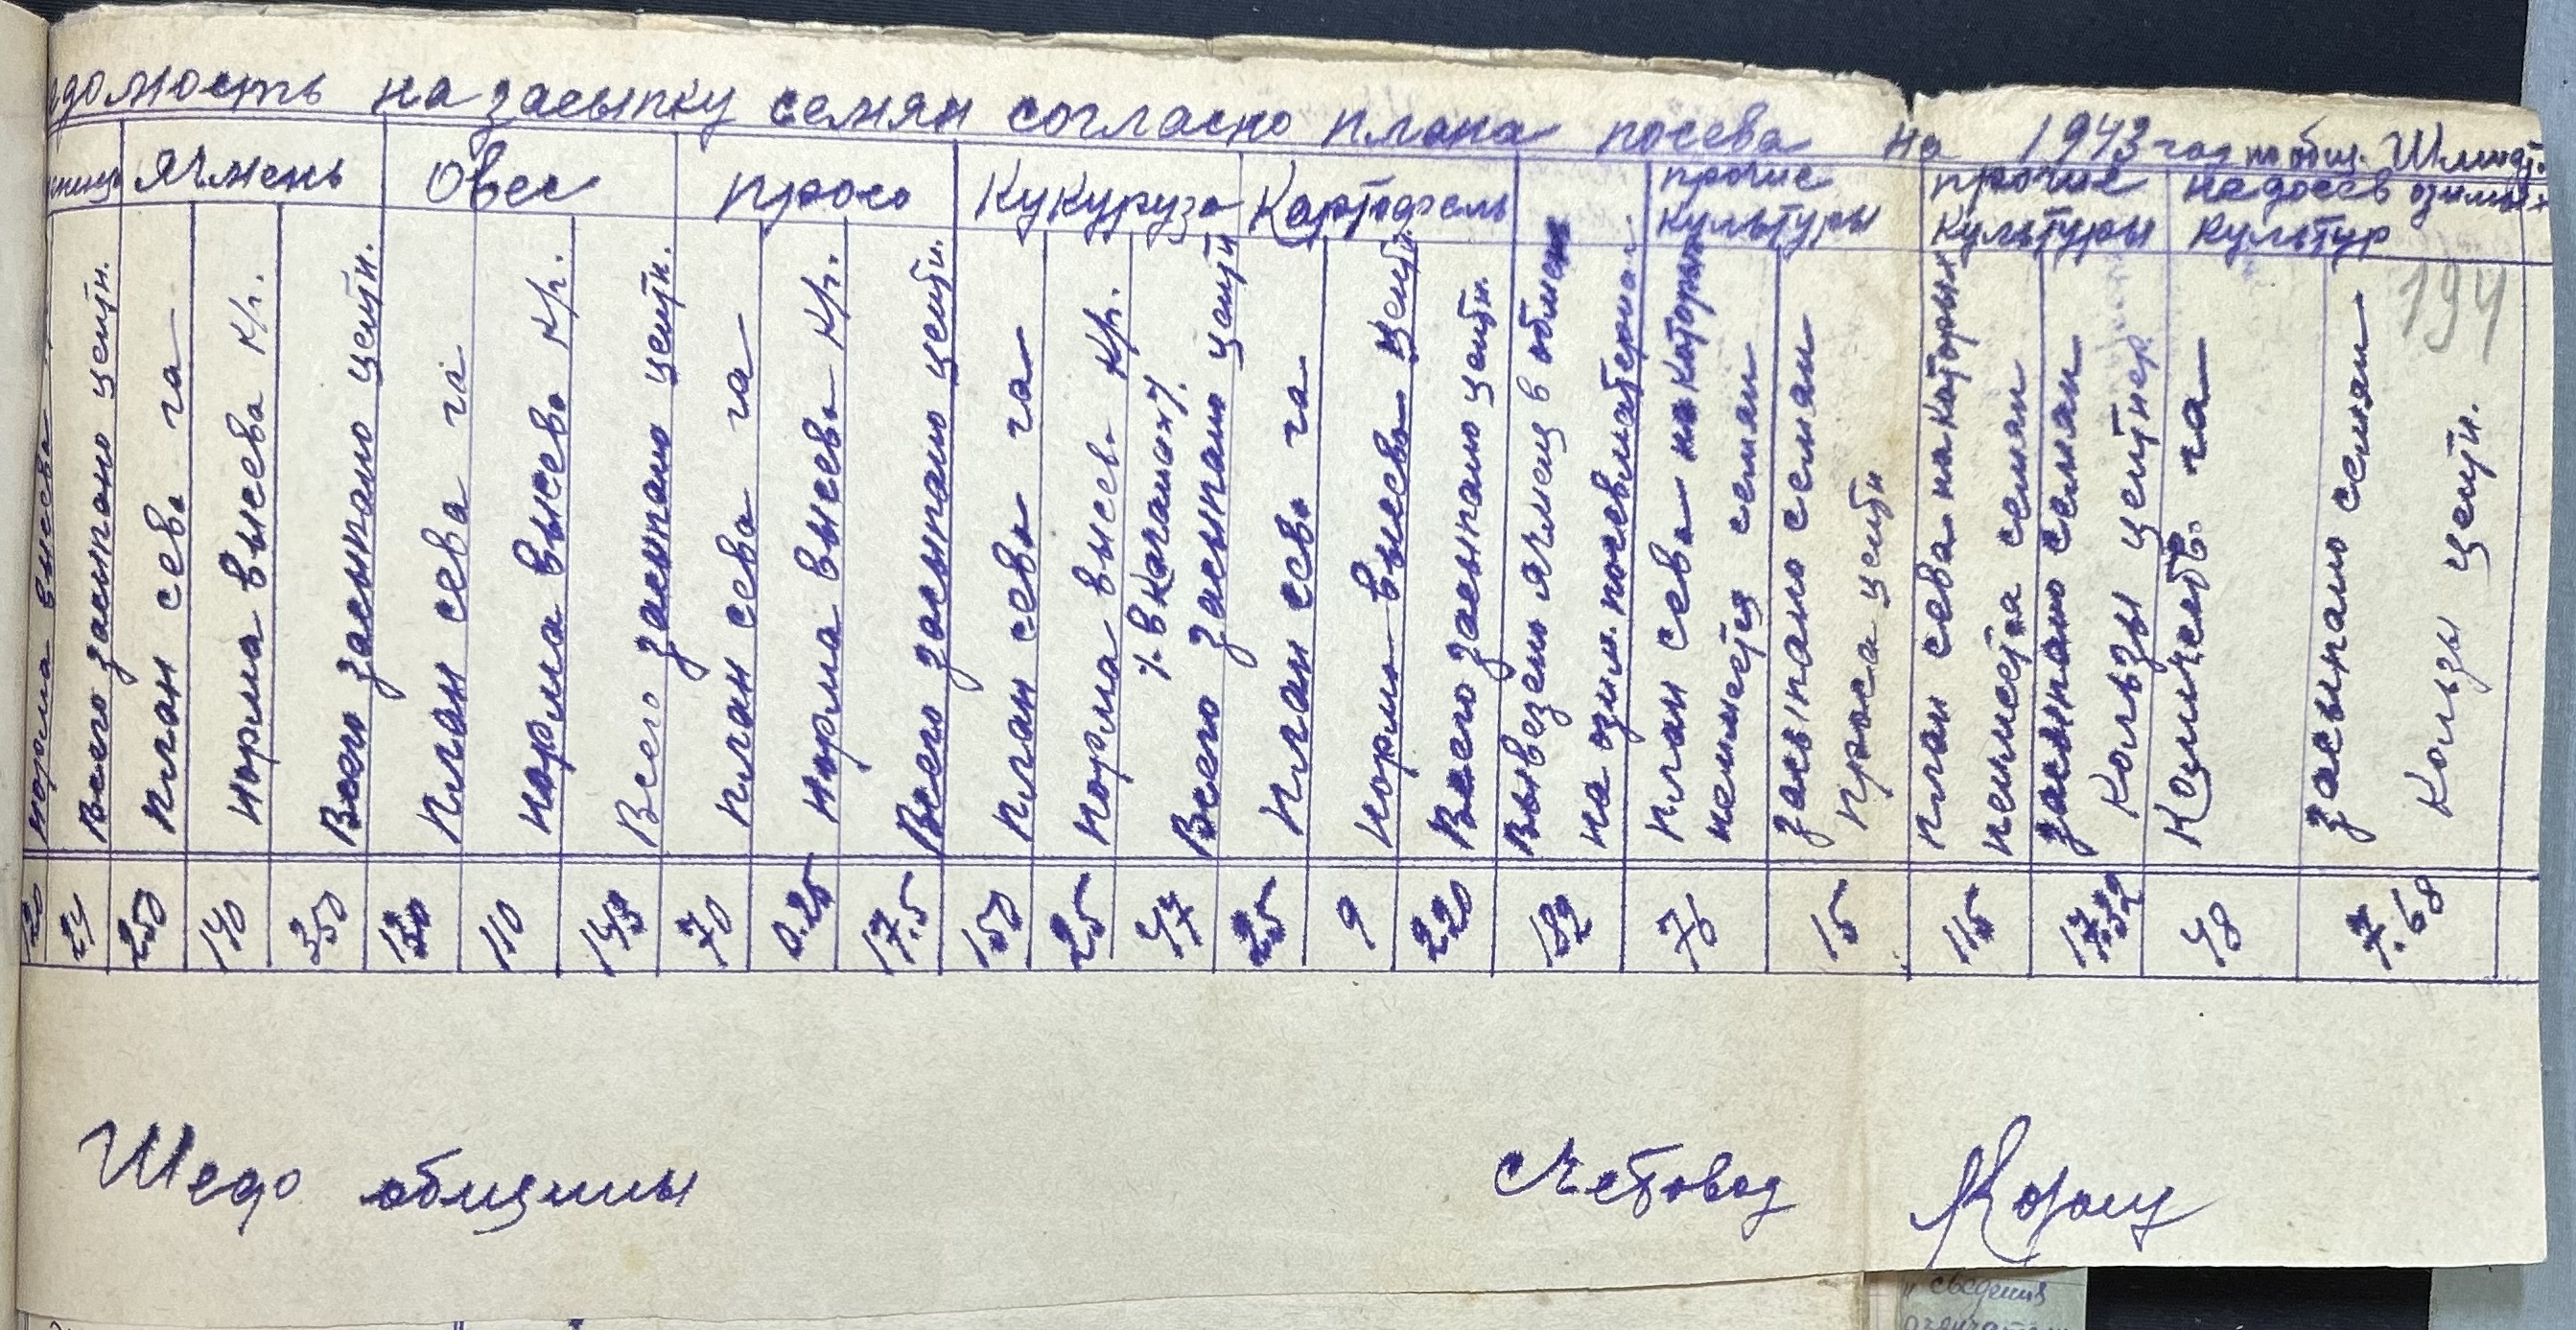 домость на засыпку семян согласно плана посева на 1943 год по общ.
Ячмень Овес просо Кукуруза Картофель прочие культуры прочие культуры недосев озимых культур
194
норма высева
Всего засыпано центн.
План сева га
Норма высева кг.
Всего засыпано центн.
План сева га
Норма высева кг.
Всего засыпано центн.
План сева га
Норма высева кг.
Всего засыпано центн.
План сева га
Норма высев. кг.
% в качанах %
Всего засыпано центн
План сева га
Норма высева центн.
Всего засыпано центн.
Вывезено ячмен в обмен
на озим. посевматериа.
План сева на которые
неимеется семян
Засыпано семян
проса центн
план сева на которых
неимеется семян
Засыпано семян
Кользы центнер
Количеств. га
Засыпано семян
Кользы центн.
120 24 250 140 350 130 110 143 70 0.25 17.5 150 25 47 25 9 220 132 76 15 115 17.32 48 7.68
Шедо общины
Счетовод
" сведения